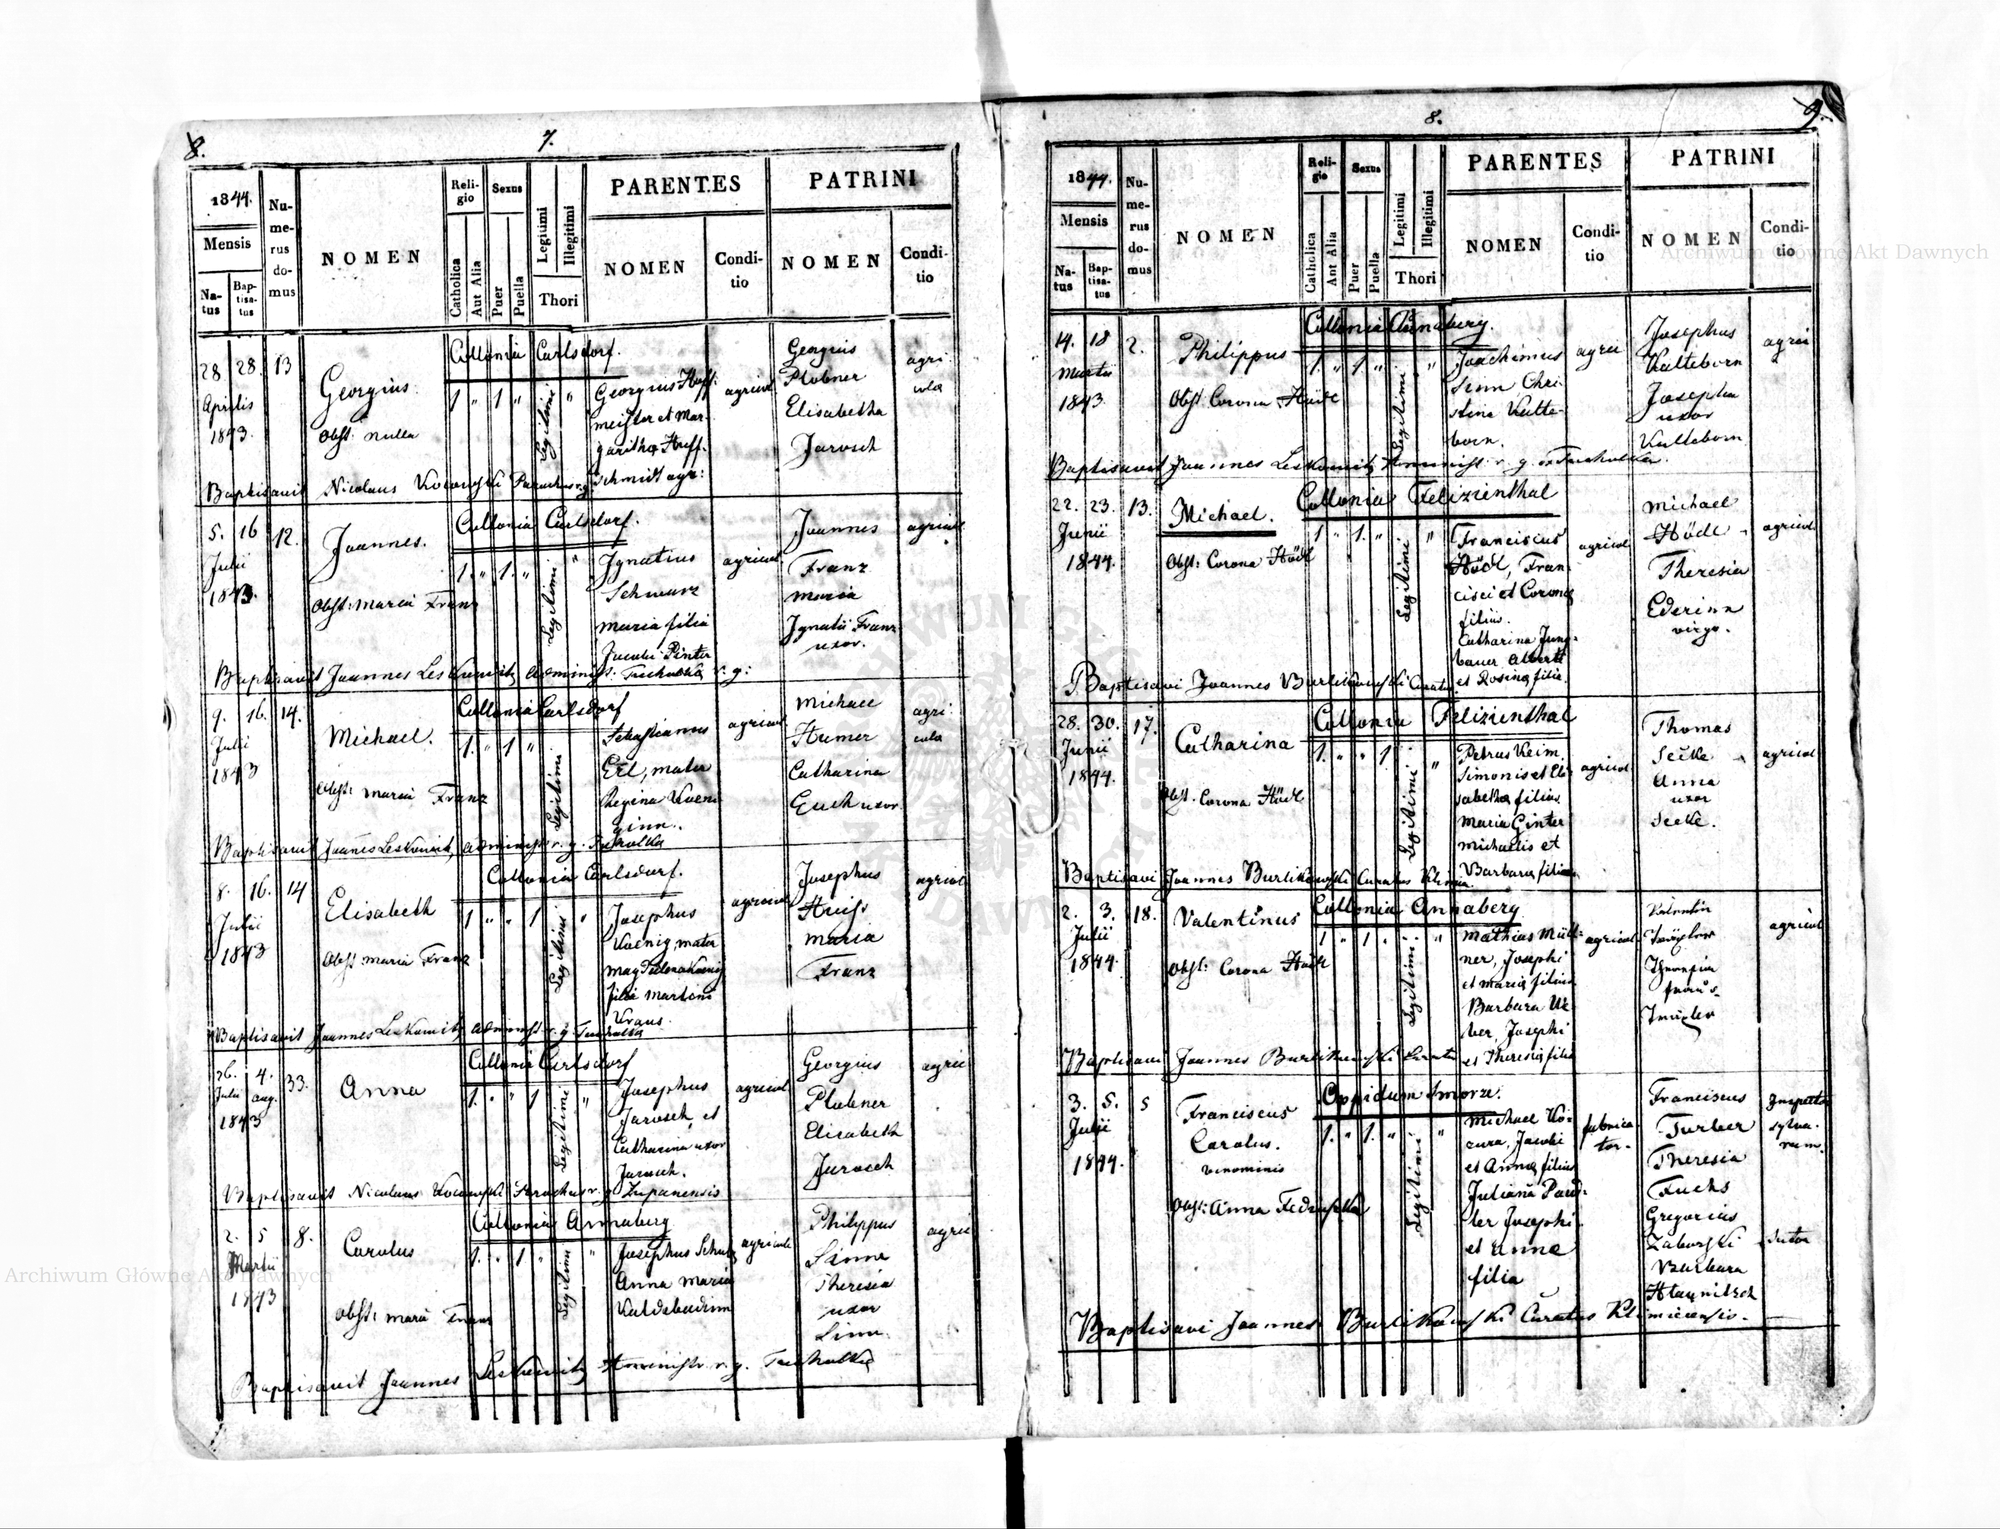 8.
7.
1844.
Numerus domus
NOMEN
Religio
Sexus
Legitimi
Illegitimi
PARENTES
PATRINI
Mensis
Natus
Baptisatus
Catholica
Aut Alia
Puer
Puella
Thori
NOMEN
Conditio
NOMEN
Conditio
Collonia Carlsdorf.
28 28. 13
Aprilis
1843.
Georgius.
Obst: nulla
1 " 1 "
Legitimi
"
Georgius Huff
meister et Mar-
garitha Huff.
Schmidt agr:
agricol
Georgius
Plobner
Elisabetha
Jarosch
agri-
cola
Baptisavit Nicolaus Parochus r. g.
Collonia Carlsdorf.
5. 16 12.
Julii
1843.
Joannes.
Obst: Maria Franz
1. " 1. "
Legitimi
"
Ignatius
Schwarz
Maria filia
Jacobi Pinter
agricol
Joannes
Franz
Maria
Ignatii Franz
uxor.
agricol
Baptisavit Joannes Leskowitz Administ: Tucholka r. g:
Collonia Carlsdorf
9. 16. 14.
Julii
1843
Michael.
Obst: Maria Franz
1. " 1 "
Legitimi
Sebastianus
Erl, mater
Regina Koeni
ginn.
agricol
Michael
Humer
Catharina
Euch uxor.
agri-
cola
Baptisavit Joannes Leskowitz, Administ r. g. Tucholka
Collonia Carlsdorf.
8. 16. 14
Julii
1843
Elisabeth
Obst Maria Franz
1 " " 1
Legitimi
"
Josephus
Koenig mater
Magdalena Koenig
filia Martini
Kraus.
agricol
Josephus
Heiss
Maria
Franz
agricol
Baptisavit Joannes Leskowitz Administ r. g. Tucholka
Collonia Carlsdorf
26. 4. 33.
Julii aug.
1843
Anna
1. " " 1
Legitimi
"
Josephus
Jarosch, et
Catharina uxor
Jarosch.
agricol
Georgius
Plobner
Elisabeth
Jarosch
agric
Baptisavit Nicolaus Parochus r. g. Zupanensis
Collonia Annaberg
2. 5 8.
Martii
1843
Carolus
Obst: Maria Franz
1. " 1 "
Legitimi
"
Josephus Schulz
Anna Maria
agricola
Philippus
Sinn
Theresia
uxor
Sinn.
agric
Baptisavit Joannes Leskowitz Administr r. g. Tucholka
8.
9.
1844.
Numerus domus
NOMEN
Religio
Sexus
Legitimi
Illegitimi
PARENTES
PATRINI
Mensis
Natus
Baptisatus
Catholica
Aut Alia
Puer
Puella
Thori
NOMEN
Conditio
NOMEN
Conditio
Collonia Annaberg.
14. 18 2.
Martii
1843.
Philippus
Obst Corona Hödl
1. " 1 "
Legitimi
"
Joachimus
Senn Chri
stina Kalte-
born.
agric
Josephus
Kalteborn
Josepha
uxor
Kalteborn
agric
Baptisavit Joannes Leskowitz Administ. r. g. Tucholka.
Collonia Felizienthal
22. 23. 13.
Junii
1844.
Michael.
Obst: Corona Hödl
1 " 1. "
Legitimi
"
Franciscus
Hödl, Fran-
cisci et Corona
filius.
Catharina Jung-
bauer Alberti
et Rosina filia.
agricol
Michael
Hödl
Theresia
Ederinn
virgo.
agricol
Baptisavi Joannes Burlikowski Curatus
Collonia Felizienthal
28. 30. 17.
Junii
1844.
Catharina
Obst. Corona Hödl
1. " " 1
Legitimi
"
Petrus Keim
Simonis et Eli-
sabetha filius
Maria Ginter
Michaelis et
Barbara filia
agricol
Thomas
Seelke
Anna
uxor
Seelke.
agricol
Baptisavi Joannes Burlikowski Curatus
Collonia Annaberg
2. 3. 18.
Julii
1844.
Valentinus
Obst: Corona Hödl
1 " 1 "
Legitimi
"
Mathias Müll-
ner, Josephi
et Maria filius
Barbara We
ber, Josephi
et Theresia filia
agricol
Valentin
agricol
Baptisavi Joannes Burlikowski Curatus
Oppidum Smorze.
3. 5. 5
Julii
1844.
Franciscus
Carolus.
binominis
Obst: Anna
1. " 1. "
Legitimi
"
Michael Ko-
zura, Jacobi
et Anna filius
Juliana
Josephi
et Anna
filia
fabrica
tor.
Franciscus
Turber
Theresia
Fuchs
Gregorius
Zaborski
Barbara
Inspector
sylva-
rum.
Sutor
Baptisavi Joannes Burlikowski Curatus Klimiecensis.
Archiwum Główne Akt Dawnych
Archiwum Główne Akt Dawnych